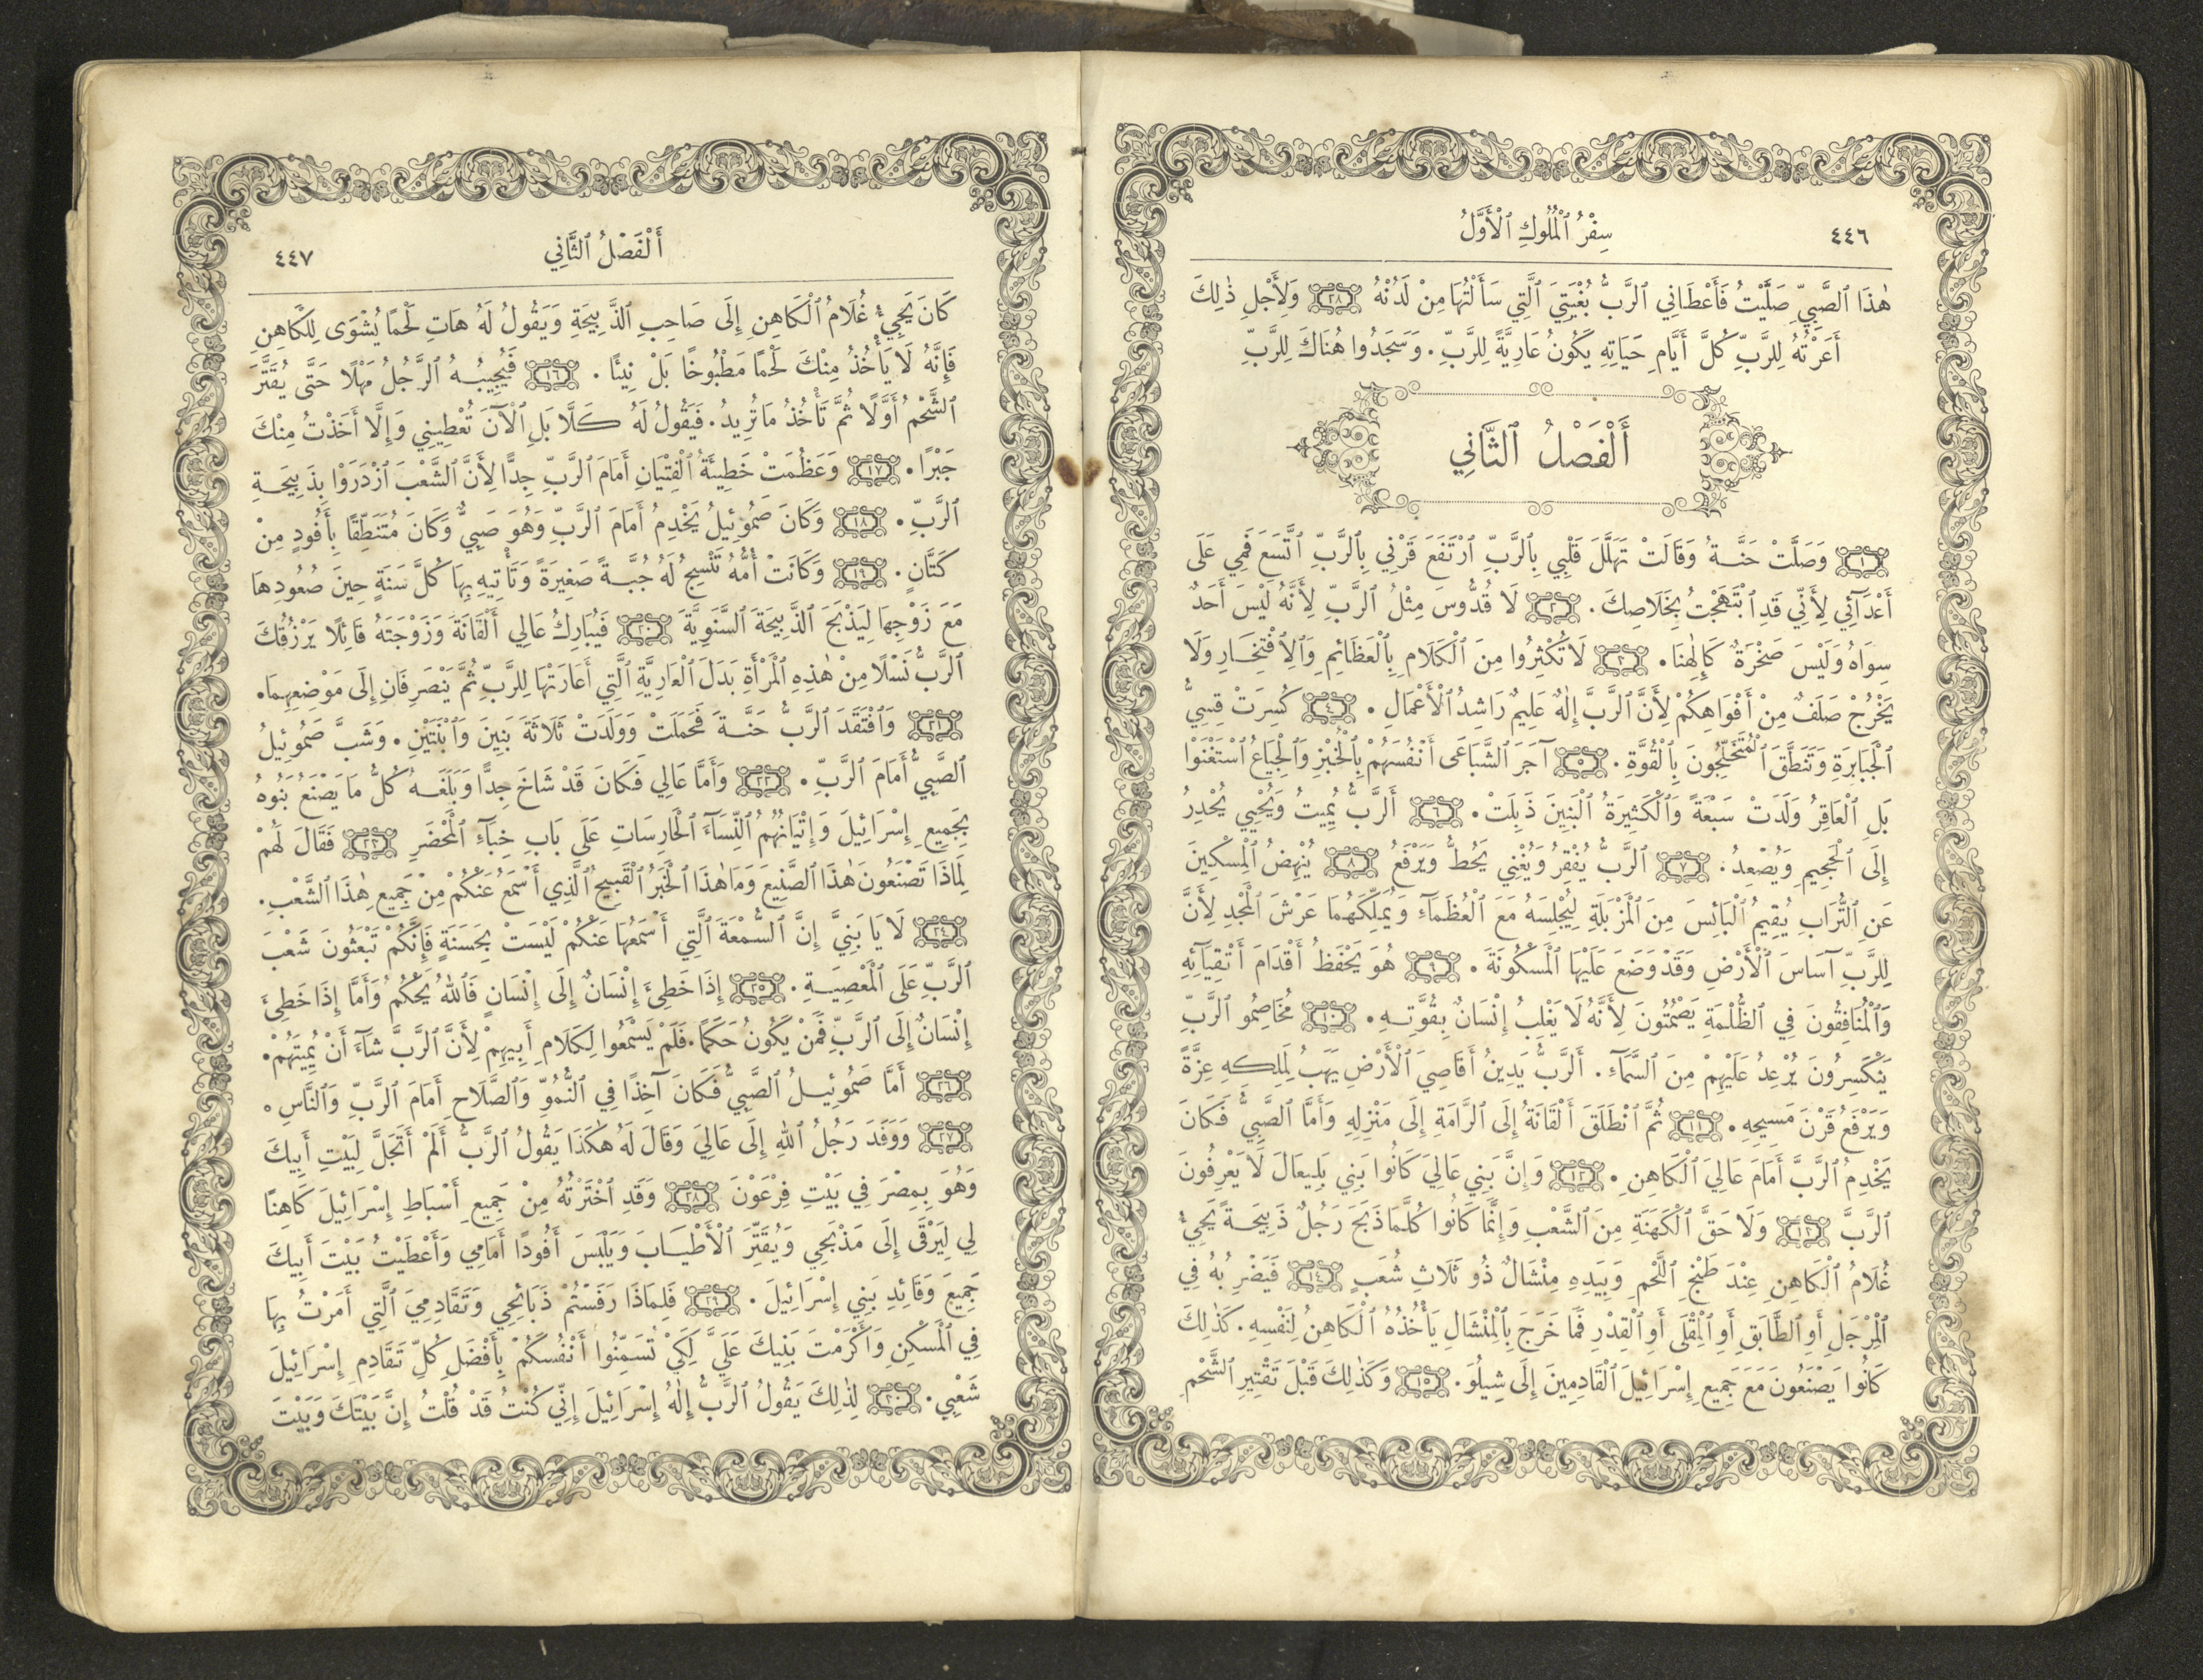 ٤٤٦
سِفْرُ ٱلْمُلُوكِ ٱلْأَوَّلُ
هٰذَا ٱلصَّبِيِّ صَلَّيْتُ فَأَعْطَانِي ٱلرَّبُّ بُغْيَتِيَ ٱلَّتِي سَأَلْتُهَا مِنْ لَدُنْهُ ٢٨ وَلِأَجْلِ ذٰلِكَ
أَعَرْتُهُ لِلرَّبِّ كُلَّ أَيَّامِ حَيَاتِهِ يَكُونُ عَارِيَّةً لِلرَّبِّ. وَسَجَدُوا هُنَاكَ لِلرَّبِّ
أَلْفَصْلُ ٱلثَّانِي
١ وَصَلَّتْ حَنَّةُ وَقَالَتْ تَهَلَّلَ قَلْبِي بِٱلرَّبِّ ٱرْتَفَعَ قَرْنِي بِٱلرَّبِّ ٱتَّسَعَ فَمِي عَلَى
أَعْدَآئِي لِأَنِّي قَدِ ٱبْتَهَجْتُ بِخَلَاصِكَ. ٢ لَا قُدُّوسَ مِثْلُ ٱلرَّبِّ لِأَنَّهُ لَيْسَ أَحَدٌ
سِوَاهُ وَلَيْسَ صَخْرَةٌ كَإِلٰهِنَا. ٣ لَا تُكْثِرُوا مِنَ ٱلْكَلَامِ بِٱلْعَظَائِمِ وَٱلِٱفْتِخَارِ وَلَا
يَخْرُجْ صَلَفٌ مِنْ أَفْوَاهِكُمْ لِأَنَّ ٱلرَّبَّ إِلٰهٌ عَلِيمٌ رَاشِدُ ٱلْأَعْمَالِ. ٤ كُسِرَتْ قِسِيُّ
ٱلْجَبَابِرَةِ وَتَنَطَّقَ ٱلْمُتَخَلِّجُونَ بِٱلْقُوَّةِ. ٥ آجَرَ ٱلشَّبَاعَى أَنْفُسَهُمْ بِٱلْخُبْزِ وَٱلْجِيَاعُ ٱسْتَغْنَوْا
بَلِ ٱلْعَاقِرُ وَلَدَتْ سَبْعَةً وَٱلْكَثِيرَةُ ٱلْبَنِينَ ذَبِلَتْ. ٦ أَلرَّبُّ يُمِيتُ وَيُحْيِي يُحْدِرُ
إِلَى ٱلْجَحِيمِ وَيُصْعِدُ. ٧ ٱلرَّبُّ يُفْقِرُ وَيُغْنِي يَحُطُّ وَيَرْفَعُ ٨ يُنْهِضُ ٱلْمِسْكِينَ
عَنِ ٱلتُّرَابِ يُقِيمُ ٱلْبَائِسَ مِنَ ٱلْمَزْبَلَةِ لِيُجْلِسَهُ مَعَ ٱلْعُظَمَآءِ وَيُمَلِّكَهُمَا عَرْشَ ٱلْمَجْدِ لِأَنَّ
لِلرَّبِّ آسَاسَ ٱلْأَرْضِ وَقَدْ وَضَعَ عَلَيْهَا ٱلْمَسْكُونَةَ. ٩ هُوَ يَحْفَظُ أَقْدَامَ أَتْقِيَآئِهِ
وَٱلْمُنَافِقُونَ فِي ٱلظُّلْمَةِ يَصْمُتُونَ لِأَنَّهُ لَا يَغْلِبُ إِنْسَانٌ بِقُوَّتِهِ. ١٠ مُخَاصِمُو ٱلرَّبِّ
يَنْكَسِرُونَ يُرْعِدُ عَلَيْهِمْ مِنَ ٱلسَّمَآءِ. أَلرَّبُّ يَدِينُ أَقَاصِيَ ٱلْأَرْضِ يَهَبُ لِمَلِكِهِ عِزَّةً
وَيَرْفَعُ قَرْنَ مَسِيحِهِ. ١١ ثُمَّ ٱنْطَلَقَ أَلْقَانَةُ إِلَى ٱلرَّامَةِ إِلَى مَنْزِلِهِ وَأَمَّا ٱلصَّبِيُّ فَكَانَ
يَخْدِمُ ٱلرَّبَّ أَمَامَ عَالِيَ ٱلْكَاهِنِ. ١٢ وَإِنَّ بَنِي عَالِيَ كَانُوا بَنِي بَلِيعَالَ لَا يَعْرِفُونَ
ٱلرَّبَّ ١٣ وَلَا حَقَّ ٱلْكَهَنَةِ مِنَ ٱلشَّعْبِ وَإِنَّمَا كَانُوا كُلَّمَا ذَبَحَ رَجُلٌ ذَبِيحَةً يَجِيءُ
غُلَامُ ٱلْكَاهِنِ عِنْدَ طَبْخِ ٱللَّحْمِ وَبِيَدِهِ مِنْشَالٌ ذُو ثَلَاثِ شُعَبٍ ١٤ فَيَضْرِبُ بُهُ فِي
ٱلْمِرْجَلِ أَوِ ٱلطَّابَقِ أَوِ ٱلْمِقْلَى أَوِ ٱلْقِدْرِ فَمَا خَرَجَ بِٱلْمِنْشَالِ يَأْخُذُهُ ٱلْكَاهِنُ لِنَفْسِهِ. كَذٰلِكَ
كَانُوا يَصْنَعُونَ مَعَ جَمِيعِ إِسْرَائِيلَ ٱلْقَادِمِينَ إِلَى شِيلُوَ. ١٥ وَكَذٰلِكَ قَبْلَ تَقْتِيرِ ٱلشَّحْمِ
أَلْفَصْلُ ٱلثَّانِي
٤٤٧
كَانَ يَجِيءُ غُلَامُ ٱلْكَاهِنِ إِلَى صَاحِبِ ٱلذَّبِيحَةِ وَيَقُولُ لَهُ هَاتِ لَحْمًا يُشْوَى لِلْكَاهِنِ
فَإِنَّهُ لَا يَأْخُذُ مِنْكَ لَحْمًا مَطْبُوخًا بَلْ نِيئًا. ١٦ فَيُجِيبُهُ ٱلرَّجُلُ مَهْلًا حَتَّى يُقَتَّرَ
ٱلشَّحْمُ أَوَّلًا ثُمَّ تَأْخُذُ مَا تُرِيدُ. فَيَقُولُ لَهُ كَلَّا بَلِ ٱلْآنَ تُعْطِينِي وَإِلَّا أَخَذْتُ مِنْكَ
جَبْرًا. ١٧ وَعَظُمَتْ خَطِيئَةُ ٱلْفِتْيَانِ أَمَامَ ٱلرَّبِّ جِدًّا لِأَنَّ ٱلشَّعْبَ ٱزْدَرَوْا بِذَبِيحَةِ
ٱلرَّبِّ. ١٨ وَكَانَ صَمُوئِيلُ يَخْدِمُ أَمَامَ ٱلرَّبِّ وَهُوَ صَبِيٌّ وَكَانَ مُتَنَطِّقًا بِأَفُودٍ مِنْ
كَتَّانٍ. ١٩ وَكَانَتْ أُمُّهُ تَنْسِجُ لَهُ جُبَّةً صَغِيرَةً وَتَأْتِيهِ بِهَا كُلَّ سَنَةٍ حِينَ صُعُودِهَا
مَعَ زَوْجِهَا لِيَذْبَحَ ٱلذَّبِيحَةَ ٱلسَّنَوِيَّةَ ٢٠ فَيُبَارِكُ عَالِي أَلْقَانَةَ وَزَوْجَتَهُ قَائِلًا يَرْزُقُكَ
ٱلرَّبُّ نَسْلًا مِنْ هٰذِهِ ٱلْمَرْأَةِ بَدَلَ ٱلْعَارِيَّةِ ٱلَّتِي أَعَارَتْهَا لِلرَّبِّ ثُمَّ يَنْصَرِفَانِ إِلَى مَوْضِعِهِمَا.
٢١ وَٱفْتَقَدَ ٱلرَّبُّ حَنَّةَ فَحَمَلَتْ وَوَلَدَتْ ثَلَاثَةَ بَنِينَ وَٱبْنَتَيْنِ. وَشَبَّ صَمُوئِيلُ
ٱلصَّبِيُّ أَمَامَ ٱلرَّبِّ. ٢٢ وَأَمَّا عَالِي فَكَانَ قَدْ شَاخَ جِدًّا وَبَلَغَهُ كُلُّ مَا يَصْنَعُ بَنُوهُ
بِجَمِيعِ إِسْرَائِيلَ وَإِتْيَانُهُمُ ٱلنِّسَآءَ ٱلْحَارِسَاتِ عَلَى بَابِ خِبَآءِ ٱلْمَحْضَرِ ٢٣ فَقَالَ لَهُمْ
لِمَاذَا تَصْنَعُونَ هٰذَا ٱلصَّنِيعَ وَمَا هٰذَا ٱلْخَبَرُ ٱلْقَبِيحُ ٱلَّذِي أَسْمَعُ عَنْكُمْ مِنْ جَمِيعِ هٰذَا ٱلشَّعْبِ.
٢٤ لَا يَا بَنِيَّ إِنَّ ٱلسُّمْعَةَ ٱلَّتِي أَسْمَعُهَا عَنْكُمْ لَيْسَتْ بِحَسَنَةٍ فَإِنَّكُمْ تَبْعَثُونَ شَعْبَ
ٱلرَّبِّ عَلَى ٱلْمَعْصِيَةِ. ٢٥ إِذَا خَطِئَ إِنْسَانٌ إِلَى إِنْسَانٍ فَٱللهُ يَحْكُمُ وَأَمَّا إِذَا خَطِئَ
إِنْسَانٌ إِلَى ٱلرَّبِّ فَمَنْ يَكُونُ حَكَمًا. فَلَمْ يَسْمَعُوا لِكَلَامِ أَبِيهِمْ لِأَنَّ ٱلرَّبَّ شَآءَ أَنْ يُمِيتَهُمْ.
٢٦ أَمَّا صَمُوئِيلُ ٱلصَّبِيُّ فَكَانَ آخِذًا فِي ٱلنُّمُوِّ وَٱلصَّلَاحِ أَمَامَ ٱلرَّبِّ وَٱلنَّاسِ.
٢٧ وَوَفَدَ رَجُلُ ٱللهِ إِلَى عَالِيَ وَقَالَ لَهُ هٰكَذَا يَقُولُ ٱلرَّبُّ أَلَمْ أَتَجَلَّ لِبَيْتِ أَبِيكَ
وَهُوَ بِمِصْرَ فِي بَيْتِ فِرْعَوْنَ ٢٨ وَقَدِ ٱخْتَرْتُهُ مِنْ جَمِيعِ أَسْبَاطِ إِسْرَائِيلَ كَاهِنًا
لِي لِيَرْقَى إِلَى مَذْبَحِي وَيُقَتِّرَ ٱلْأَطْيَابَ وَيَلْبَسَ أَفُودًا أَمَامِي وَأَعْطَيْتُ بَيْتَ أَبِيكَ
جَمِيعَ وَقَائِدِ بَنِي إِسْرَائِيلَ. ٢٩ فَلِمَاذَا رَفَسْتُمْ ذَبَائِحِي وَتَقَادِمِيَ ٱلَّتِي أَمَرْتُ بِهَا
فِي ٱلْمَسْكِنِ وَأَكْرَمْتَ بَنِيكَ عَلَيَّ لِكَيْ تُسَمِّنُوا أَنْفُسَكُمْ بِأَفْضَلِ كُلِّ تَقَادِمِ إِسْرَائِيلَ
شَعْبِي. ٣٠ لِذٰلِكَ يَقُولُ ٱلرَّبُّ إِلٰهُ إِسْرَائِيلَ إِنِّي كُنْتُ قَدْ قُلْتُ إِنَّ بَيْتَكَ وَبَيْتَ